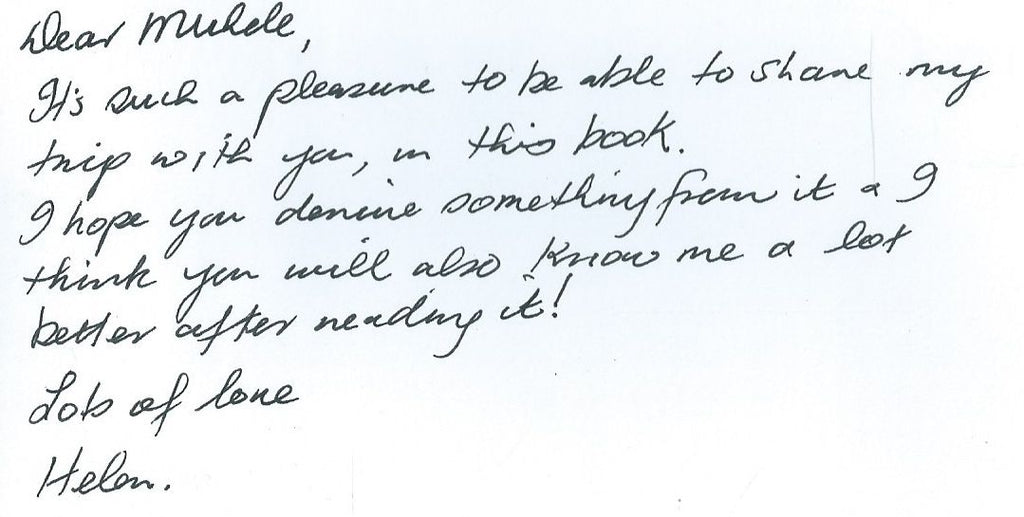 Dear
It's such a pleasure to be able to share my
trip with you, in this book.
I hope you derive something from it & I
think you will also know me a lot
better after reading it!
Lots of love
Helen.